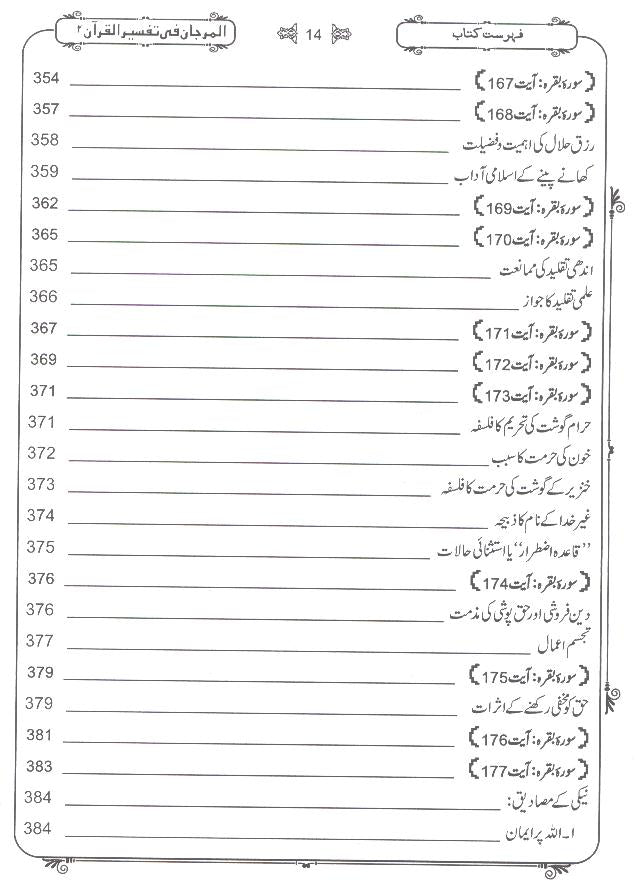 فہرست کتاب 14 المرجان فی تفسیر القرآن ۲
﴿سورۂ بقرہ: آیت 167﴾ 354
﴿سورۂ بقرہ: آیت 168﴾ 357
رزق حلال کی اہمیت و فضیلت 358
کھانے پینے کے اسلامی آداب 359
﴿سورۂ بقرہ: آیت 169﴾ 362
﴿سورۂ بقرہ: آیت 170﴾ 365
اندھی تقلید کی ممانعت 365
علمی تقلید کا جواز 366
﴿سورۂ بقرہ: آیت 171﴾ 367
﴿سورۂ بقرہ: آیت 172﴾ 369
﴿سورۂ بقرہ: آیت 173﴾ 371
حرام گوشت کی تحریم کا فلسفہ 371
خون کی حرمت کا سبب 372
خنزیر کے گوشت کی حرمت کا فلسفہ 373
غیر خدا کے نام کا ذبیحہ 374
”قاعدہ اضطرار“ یا استثنائی حالات 375
﴿سورۂ بقرہ: آیت 174﴾ 376
دین فروشی اور حق پوشی کی مذمت 376
تجسم اعمال 377
﴿سورۂ بقرہ: آیت 175﴾ 379
حق کو مخفی رکھنے کے اثرات 379
﴿سورۂ بقرہ: آیت 176﴾ 381
﴿سورۂ بقرہ: آیت 177﴾ 383
نیکی کے مصادیق: 384
۱۔ اللہ پر ایمان 384